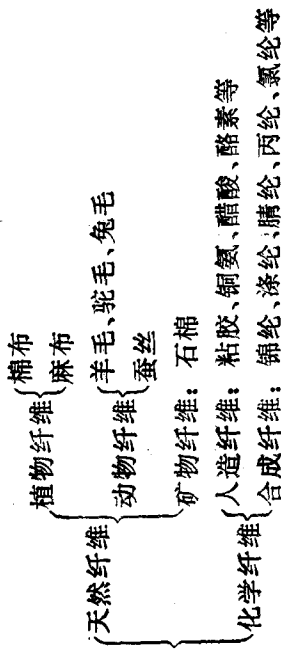 天然纤维
植物纤维
棉布
麻布
动物纤维
羊毛、驼毛、兔毛
蚕丝
矿物纤维：石棉
化学纤维
人造纤维：粘胶、铜氨、醋酸、酪素等
合成纤维：锦纶、涤纶、腈纶、丙纶、氯纶等